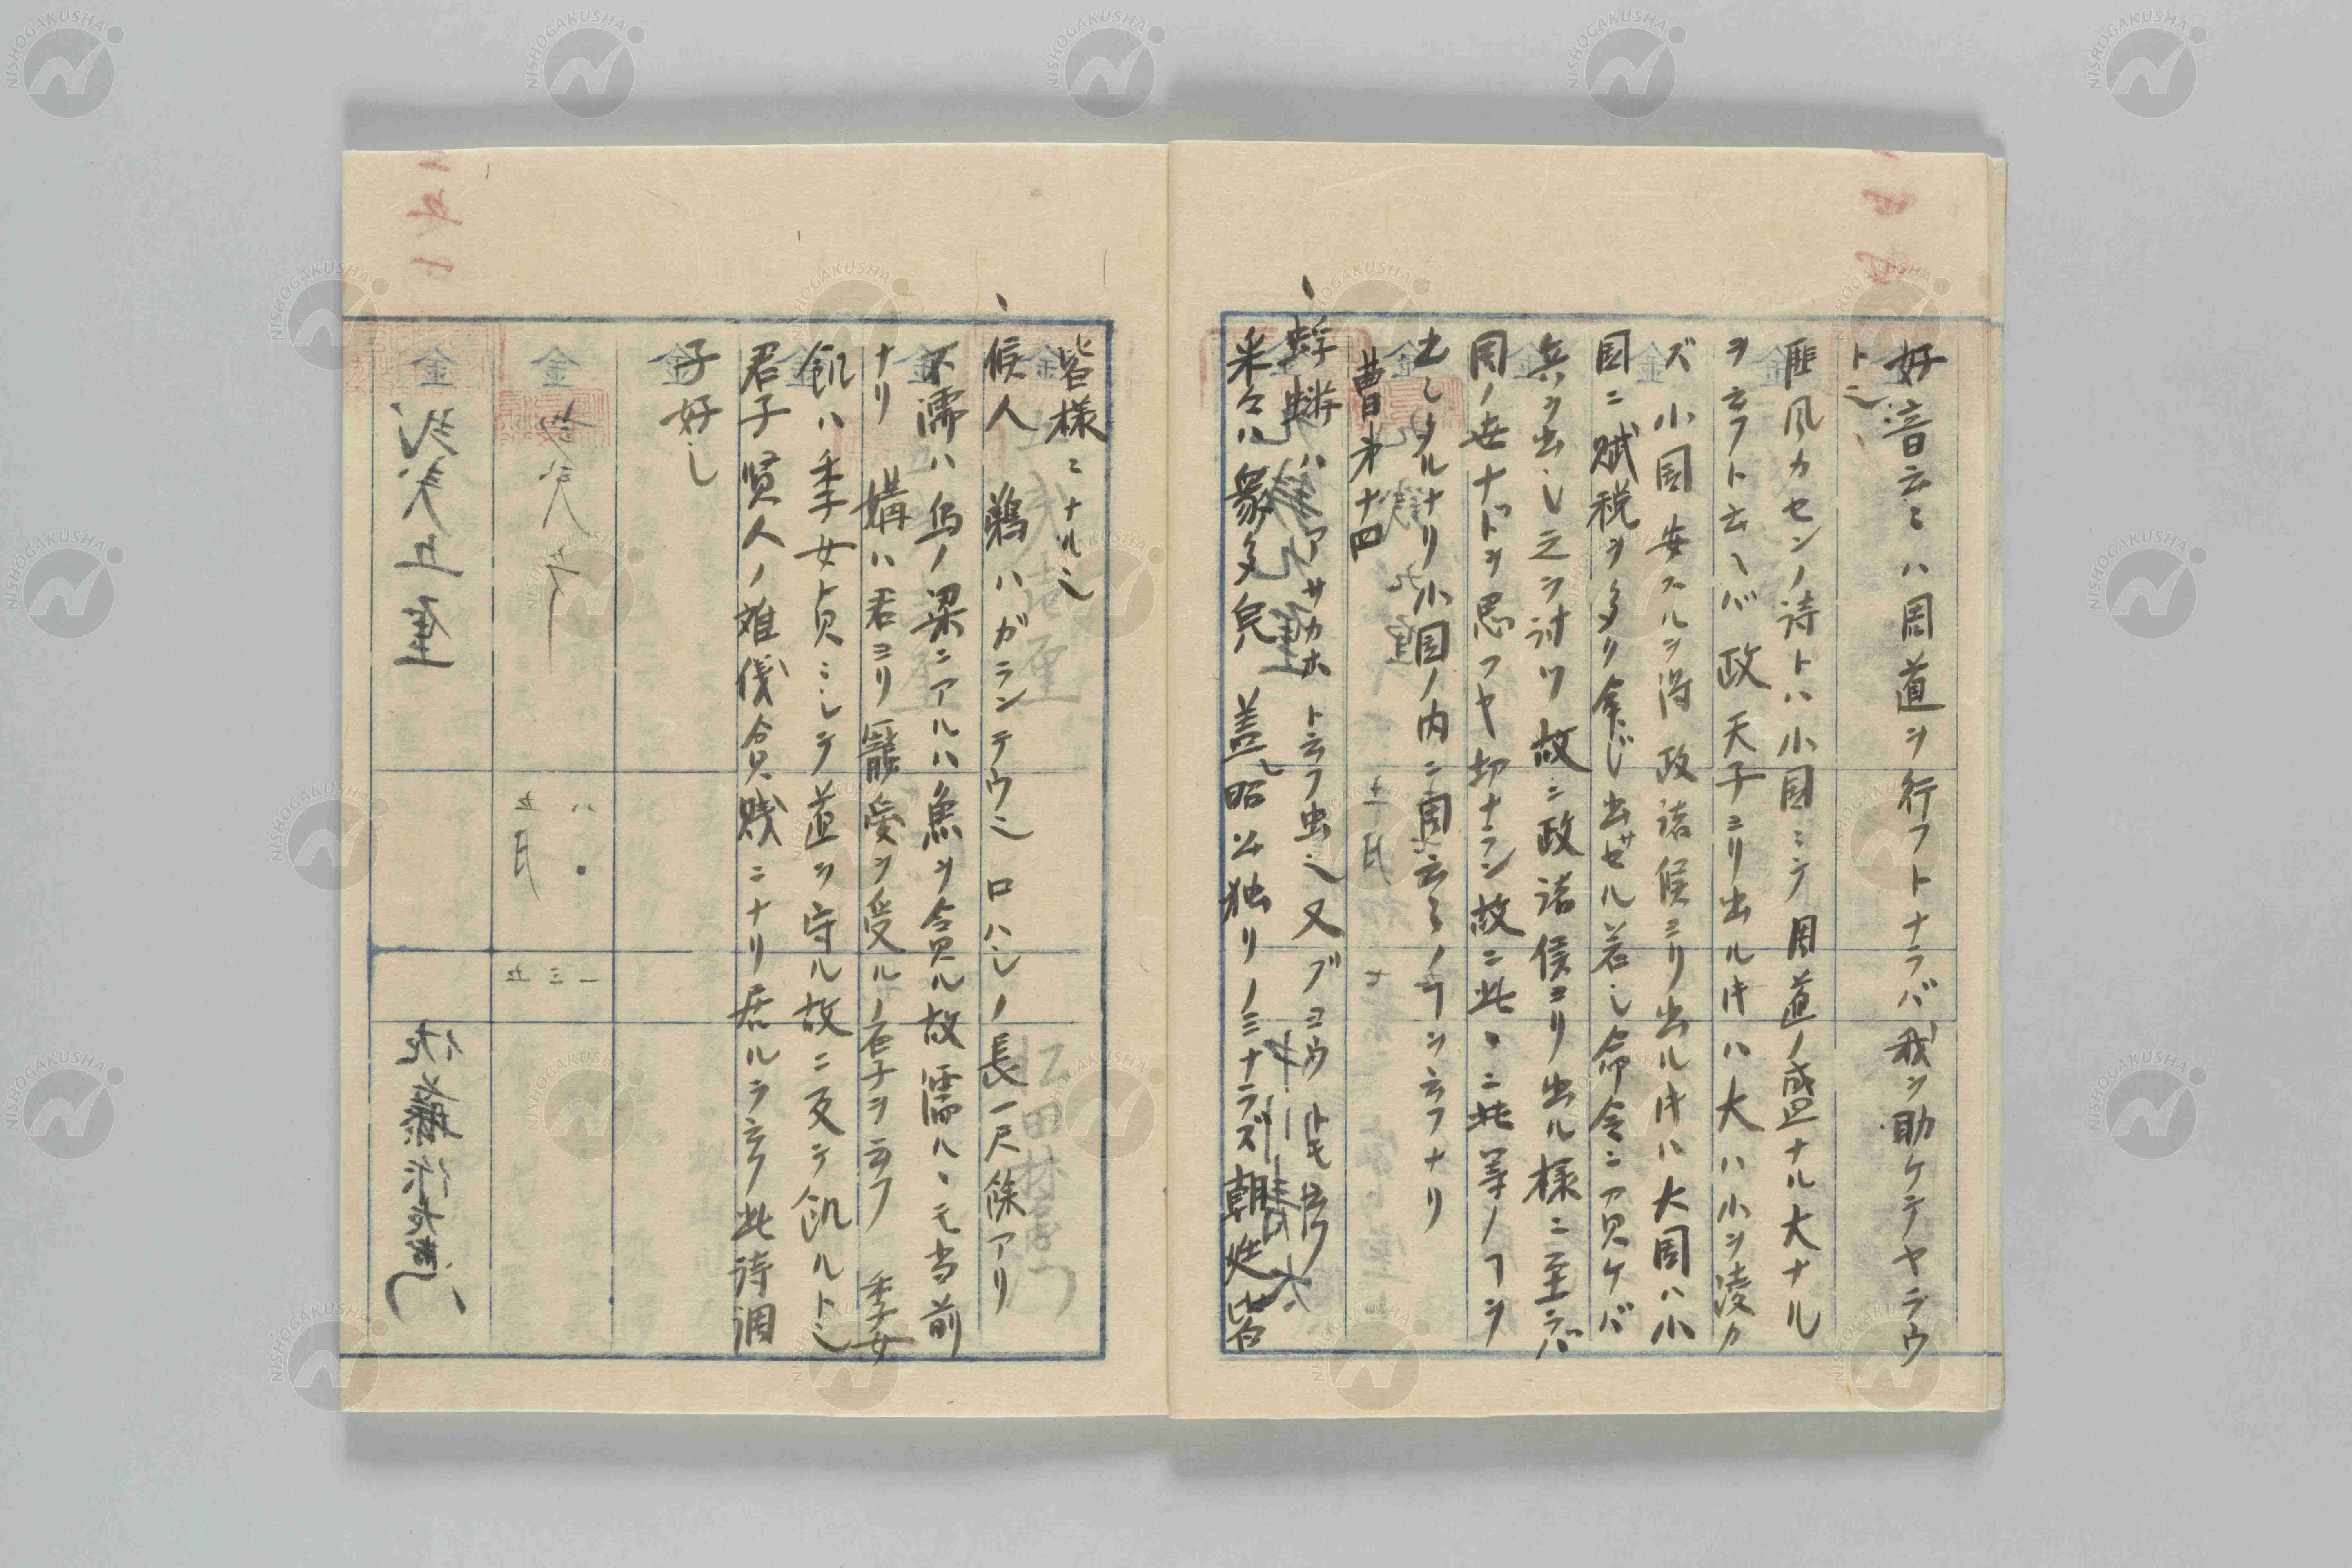 好音云々ハ周道ヲ行フトナラバ我ヲ助ケテヤラウ
ト云
匪風カセンノ詩トハ小国ミテ周道ノ盛ナル大ナル
ヲ云フト云ヘバ政天子ヨリ出ル时ハ大ハ小ヲ凌カ
ズ小国安スルヲ得政諸侯ヨリ出ル时ハ大国ハ小
国ニ賦税ヲ多ク命じ出サゼル若し命令ニ負ケバ
兵ヲ出し之ヲ討ツ故ニ政諸侯ヨリ出ル様ニ至ラバ
周ノ世ナドヲ思フヤ切ナラン故ニ此ニ此等ノヿヲ
出しタルナリ小国ノ内ニ周云々ノヿヲ云フナリ
曹才十四
蜉蝣ハアサカホト云フ虫也又ブヨウトモ
采々ハ衆多皃 蓋シ昭公独リノミナラズ朝廷皆
皆様ニナル也
候人 鵜ハガランテウ也 口ハしノ長一尺餘アリ
不濡ハ鳥ノ梁ニアルハ魚ヲ貪ル故濡ルヽモ当前
ナリ 媾ハ君ヨリ寵愛ヲ受ルノ君子ヲ云フ 季女
飢ハ季女貞ミしテ道ヲ守ル故ニ反テ飢ルト也
君子賢人ノ難儀貧賤ニナリ居ルヲ云フ此詩調
子好し
金
金
金
金
金
金
仁田